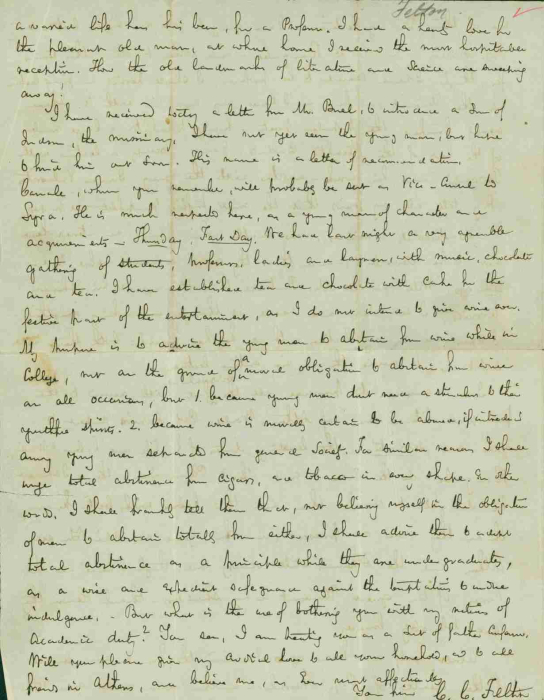 Felton
a varied life has his been, for a Professor. I had a hearty love for
the pleasant old man, at whose home I received the most hospitable
reception. How the old landmarks of literature and Science are sweeping
away!
I have received today a letter from Mr. Buel, to introduce a Son of
the missionary. I have not yet seen the young man, but hope
to find him out soon. His name is a letter of recommendation.
Canale, whom you remember, will probably be sent as Vice-Consul to
Syra. He is much respected here, as a young man of character and
acquirements. — Thursday. Fast Day. We had last night a very agreeable
gathering of students, Professors, ladies and lawyers, with music, chocolate
and tea. I have established tea and chocolate with cake for the
festive part of the entertainment, as I do not intend to give wine ever.
My purpose is to advise the young men to abstain from wine while in
College, not on the ground of a moral obligation to abstain from wine
on all occasions, but 1. because young men don't need a stimulus to their
youthful spirits. 2. because wine is morally certain to be abused, if introduced
among young men separated from general Society. For similar reasons I shall
urge total abstinence from cigars, and tobacco in every shape. In other
words, I shall frankly tell them that, not believing myself in the obligation
of men to abstain totally from either, I shall advise them to adopt
total abstinence as a principle while they are undergraduates,
as a wise and expedient safeguard against the temptation to undue
indulgence. - But what is the use of bothering you with my notions of
Academic duty? You see, I am treating you as a sort of father
Will you please give my cordial love to all your household, and to all
friends in Athens, and believe me, as Ever most affectionately
Your friend C. C. Felton